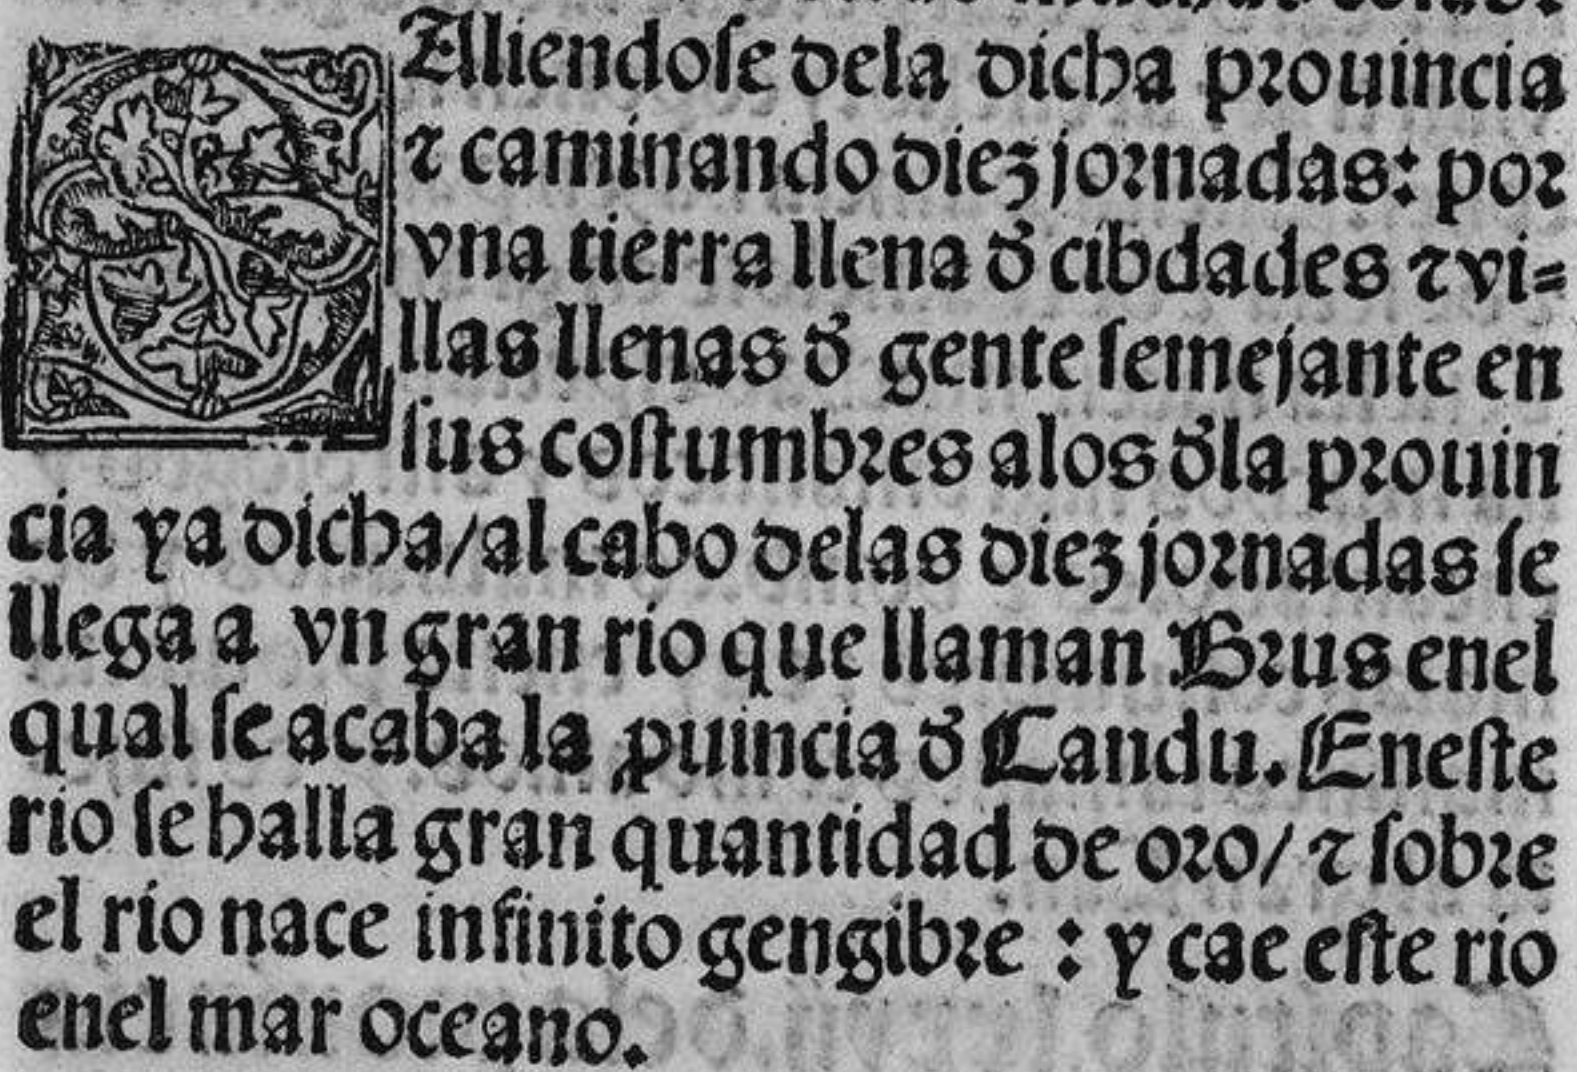 SAlliendose dela dicha prouincia
⁊ caminando diez jornadas: por
vna tierra llena d̄ cibdades ⁊ vi=
llas llenas d̄ gente semejante en
sus costumbres alos d̄la prouin
cia ya dicha/al cabo delas diez jornadas se
llega a vn gran rio que llaman Brus enel
qual se acaba la ꝓuincia d̄ Caudu. Eneste
rio se halla gran quantidad de oro/ ⁊ sobre
el rio nace infinito gengibre : y cae este rio
enel mar oceano.